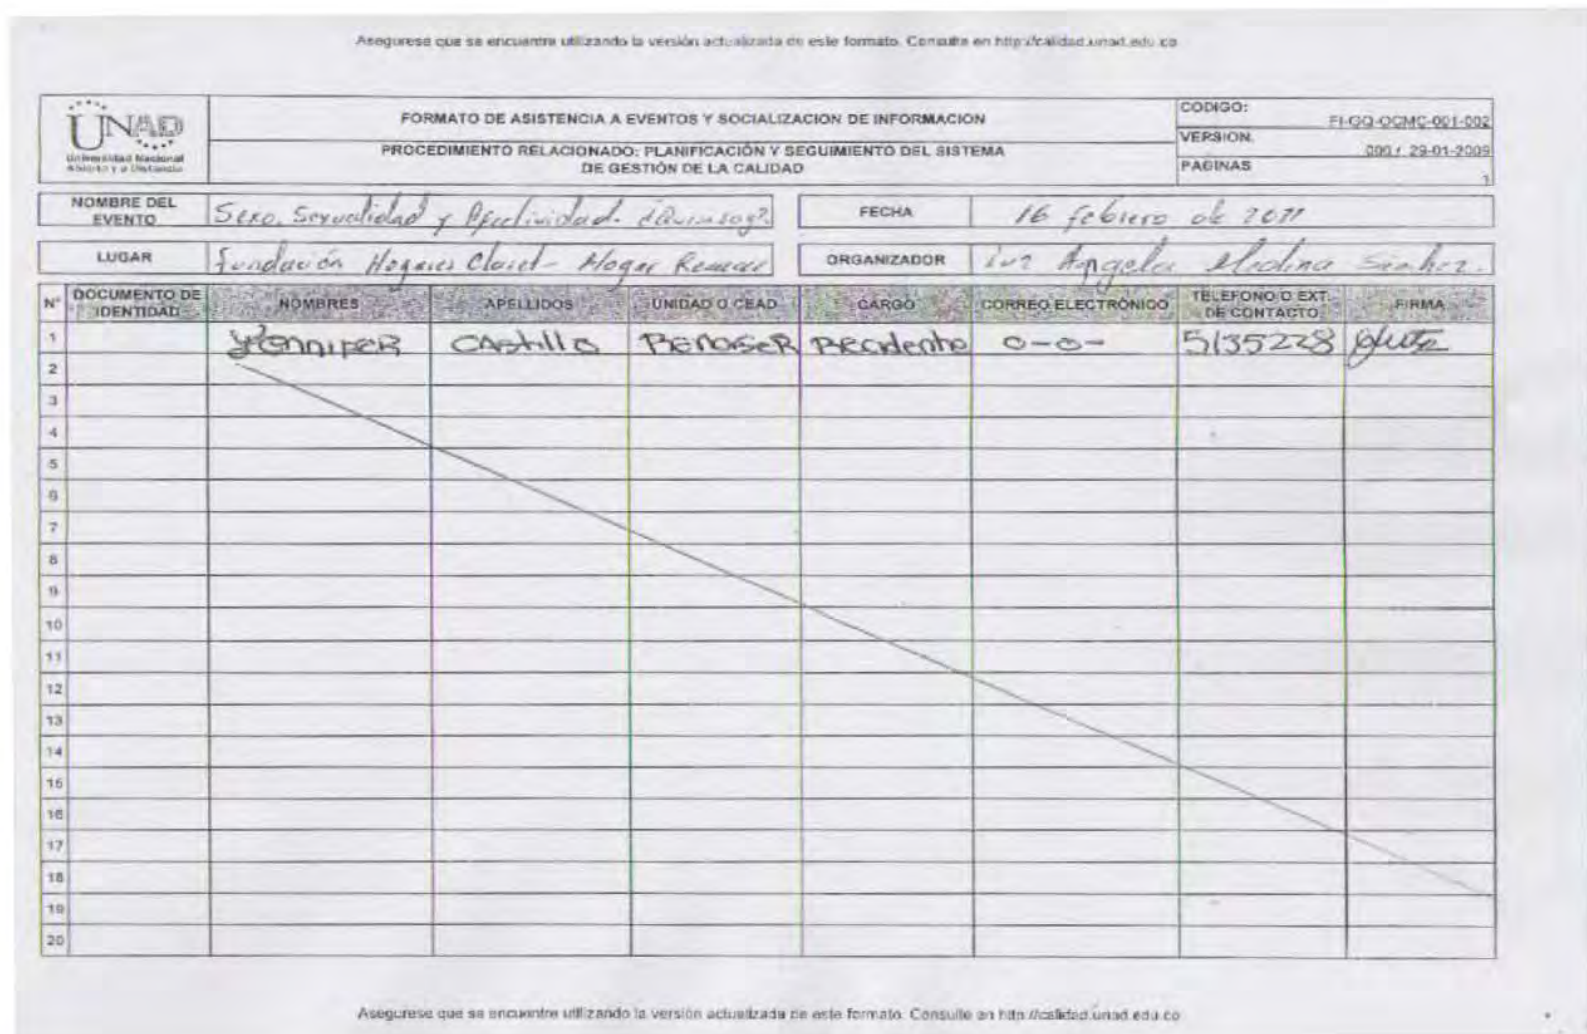 Asegurese que se encuentre utilizando la versión actualizada de este formato. Consulte en http://calidad.unad.edu.co
UNAD
Universidad Nacional
Abierta y a Distancia
FORMATO DE ASISTENCIA A EVENTOS Y SOCIALIZACION DE INFORMACION
PROCEDIMIENTO RELACIONADO: PLANIFICACIÓN Y SEGUIMIENTO DEL SISTEMA
DE GESTIÓN DE LA CALIDAD
CODIGO:
FI-GQ-OCMC-001-002
VERSION.
29-01-2009
PAGINAS
1
NOMBRE DEL
EVENTO
Sexo, Sexualidad y Afectividad. ¿Quien soy?
FECHA
16 febrero de 2011
LUGAR
Fundación Hogares Claret - Hogar
ORGANIZADOR
Luz Angela Medina Sánchez.
N° DOCUMENTO DE IDENTIDAD NOMBRES APELLIDOS UNIDAD O CEAD CARGO CORREO ELECTRÓNICO TELEFONO O EXT. DE CONTACTO FIRMA
1 Yennifer CAstillo RENASER Recidente 0-0- 5135228
2
3
4
5
6
7
8
9
10
11
12
13
14
15
16
17
18
19
20
Asegurese que se encuentre utilizando la versión actualizada de este formato. Consulte en http://calidad.unad.edu.co